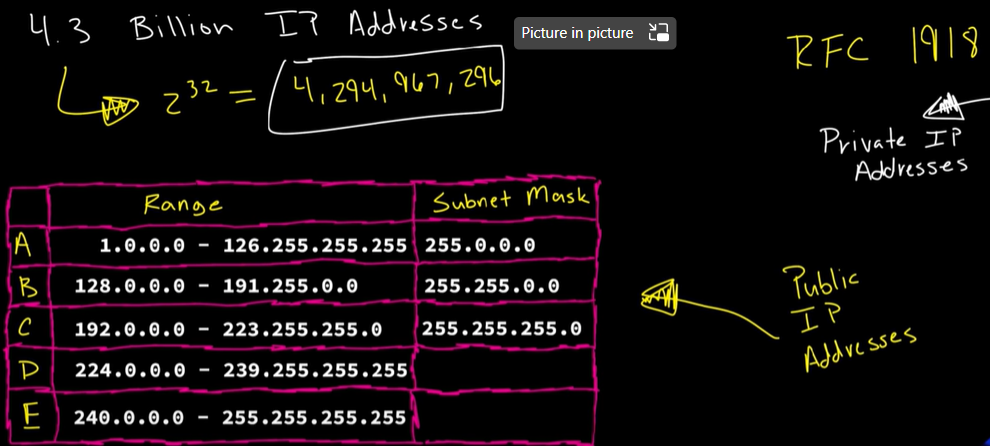 4.3 Billion IP Addresses
Picture in picture
2^32 = 4,294,967,296
RFC 1918
Private IP
Addresses
Range Subnet Mask
A 1.0.0.0 - 126.255.255.255 255.0.0.0
B 128.0.0.0 - 191.255.0.0 255.255.0.0
C 192.0.0.0 - 223.255.255.0 255.255.255.0
D 224.0.0.0 - 239.255.255.255
E 240.0.0.0 - 255.255.255.255
Public
IP
Addresses